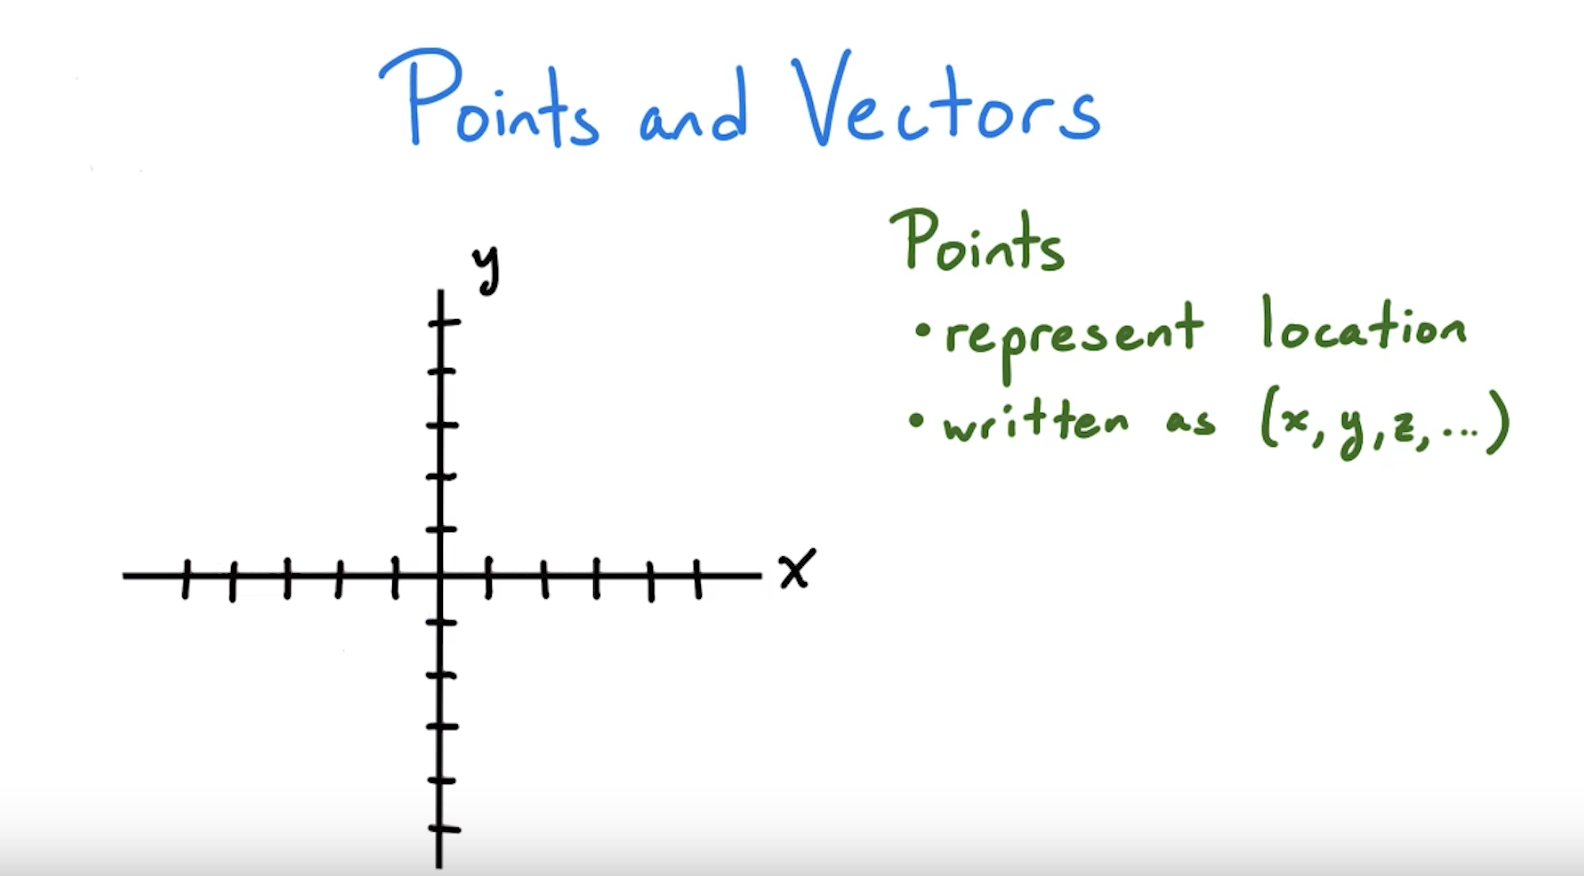 Points and Vectors
Points
• represent location
• written as (x, y, z, ...)
y
x